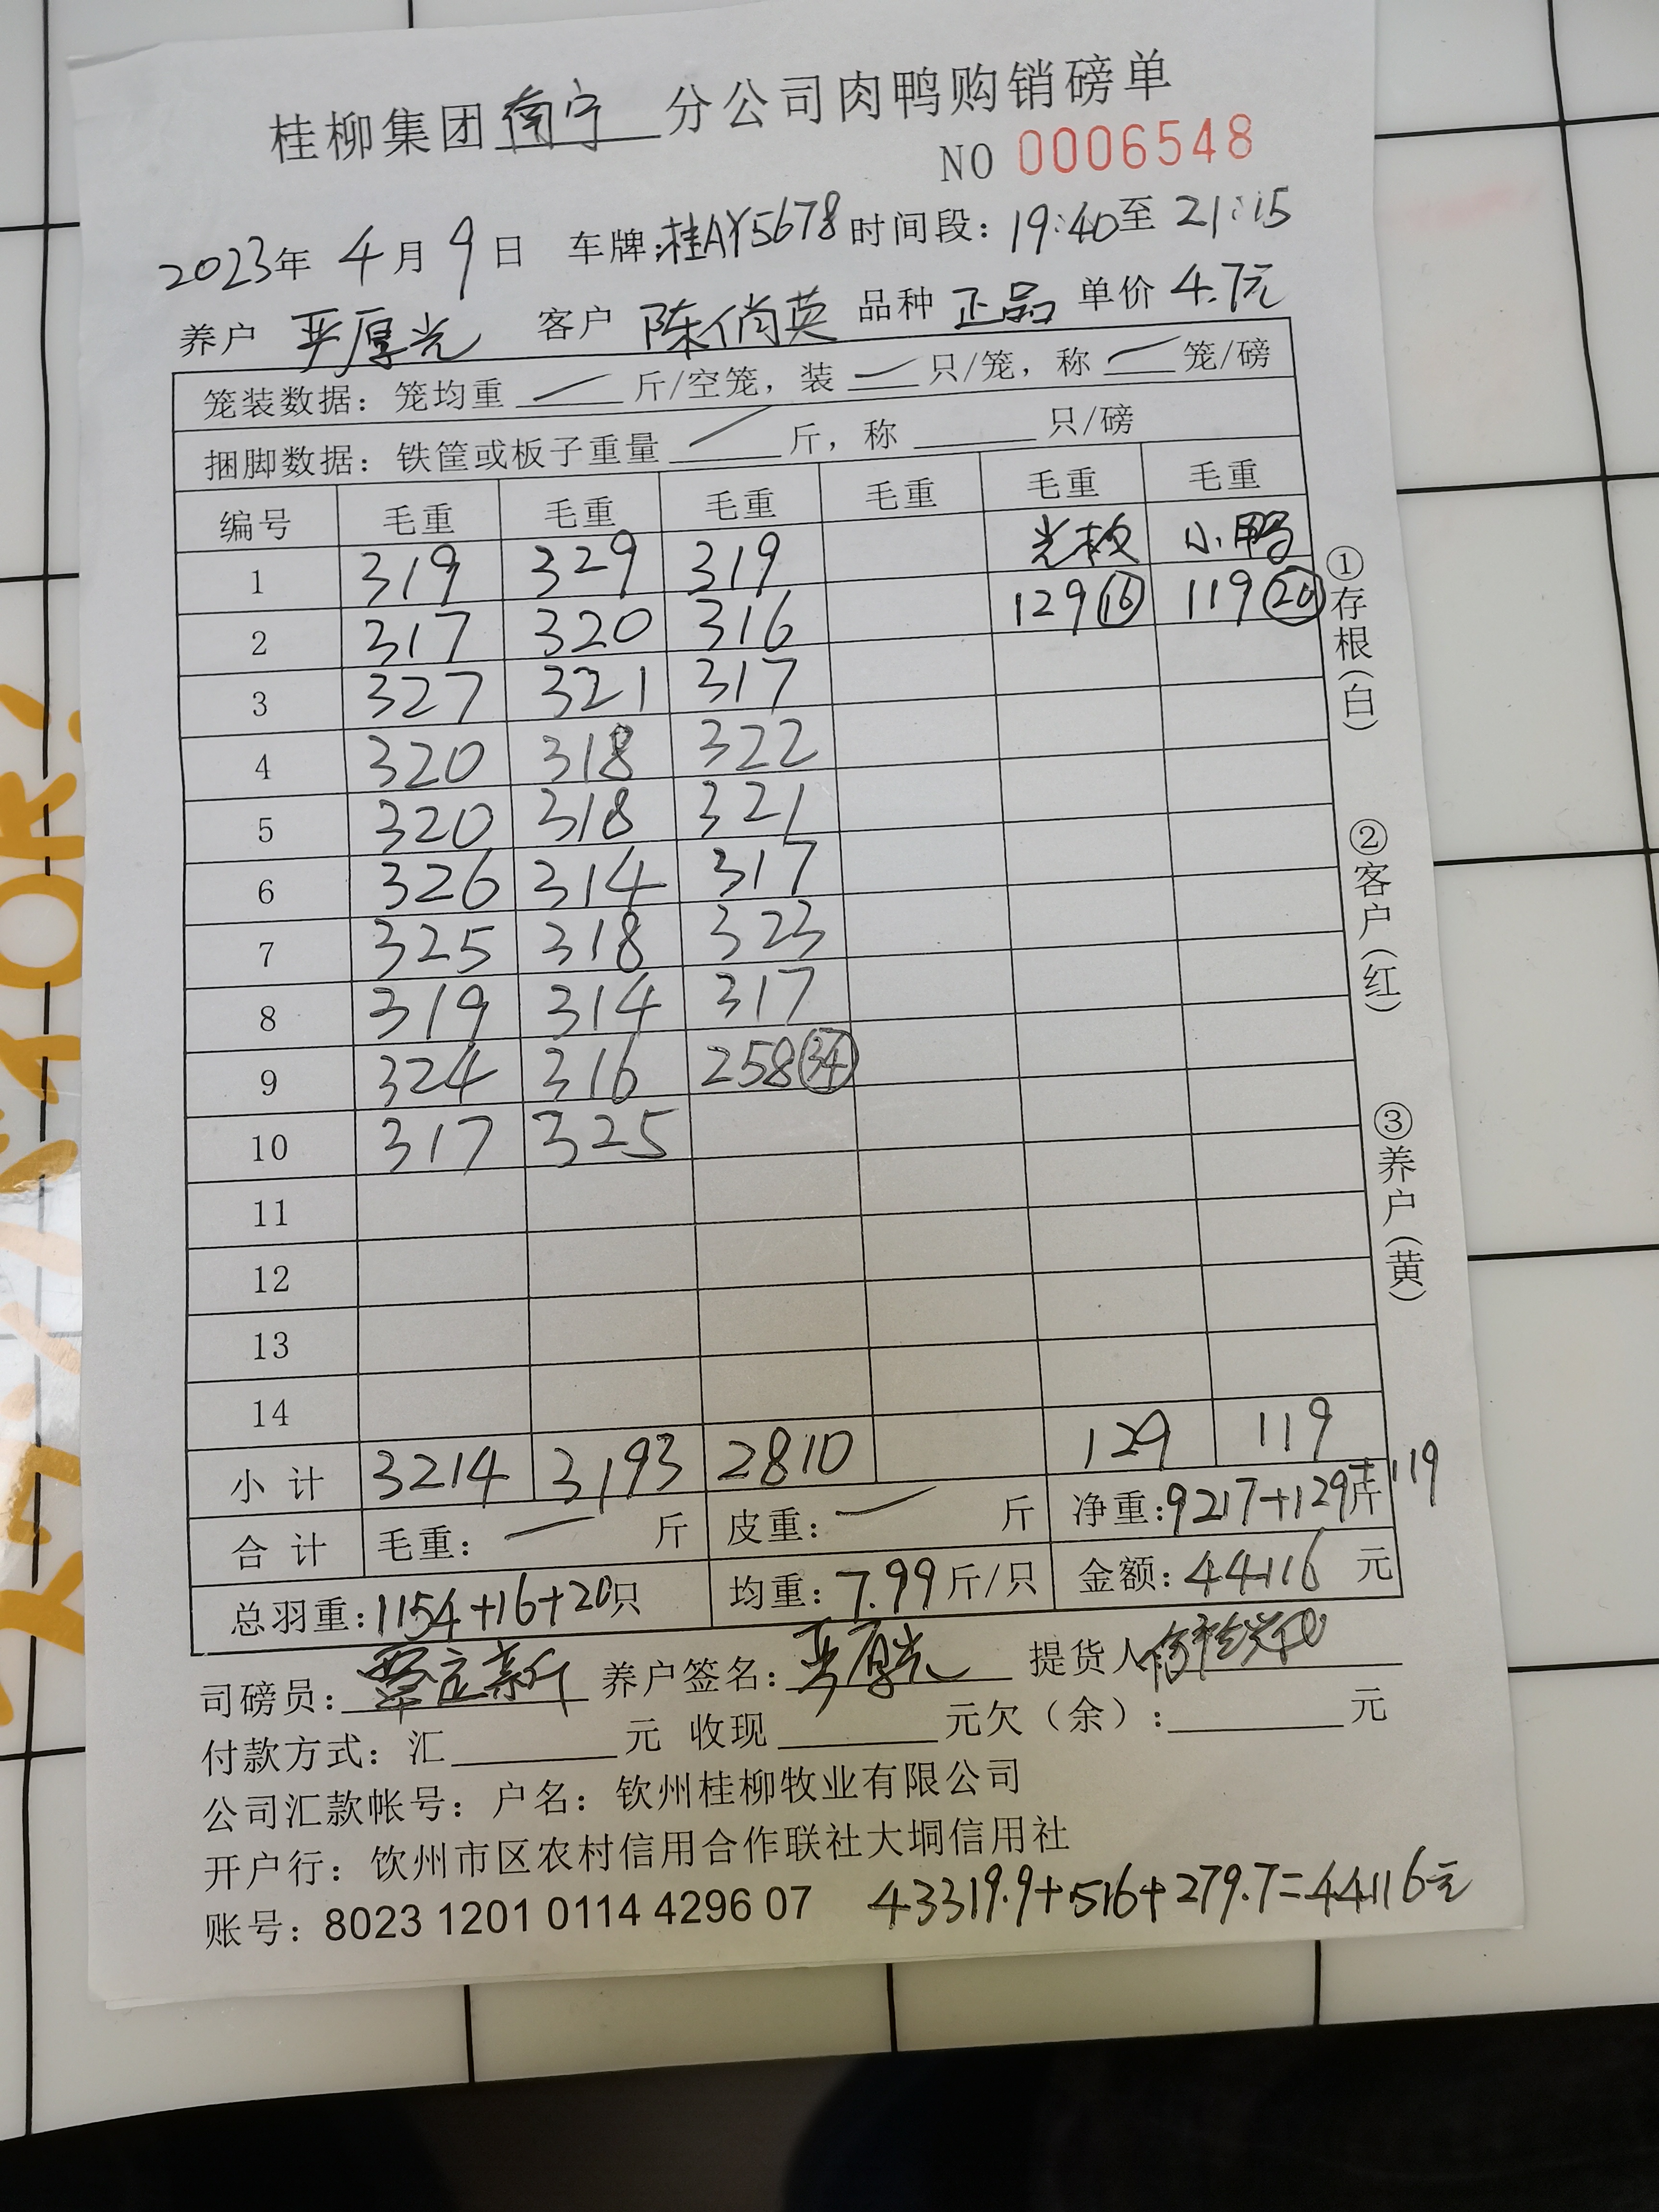 桂柳集团南宁分公司肉鸭购销磅单
NO 0006548
2023年 4月 9日 车牌:桂AY5678 时间段: 19:40至 21:15
养户 严厚光 客户 陈俏英 品种 正品 单价 4.7元
笼装数据: 笼均重 — 斤/空笼, 装 — 只/笼, 称 — 笼/磅
捆脚数据: 铁筐或板子重量 — 斤, 称 只/磅
编号 毛重 毛重 毛重 毛重 毛重 毛重
1 319 329 319 光板 小鸭
2 317 320 316 129 16 119 20
3 327 321 317
4 320 318 322
5 320 318 321
6 326 314 317
7 325 318 323
8 319 314 317
9 324 316 258 34
10 317 325
11
12
13
14
小计 3214 3193 2810 129 119
合计 毛重: — 斤 皮重: — 斤 净重:9217+129斤+119
总羽重:1154+16+20只 均重:7.99斤/只 金额:44116 元
司磅员: 覃定新 养户签名: 严厚光 提货人
付款方式: 汇 元 收现 元欠(余): 元
公司汇款帐号: 户名: 钦州桂柳牧业有限公司
开户行: 钦州市区农村信用合作联社大垌信用社
账号: 8023 1201 0114 4296 07 43319.9+516+279.7=44116元
①存根(白)
②客户(红)
③养户(黄)